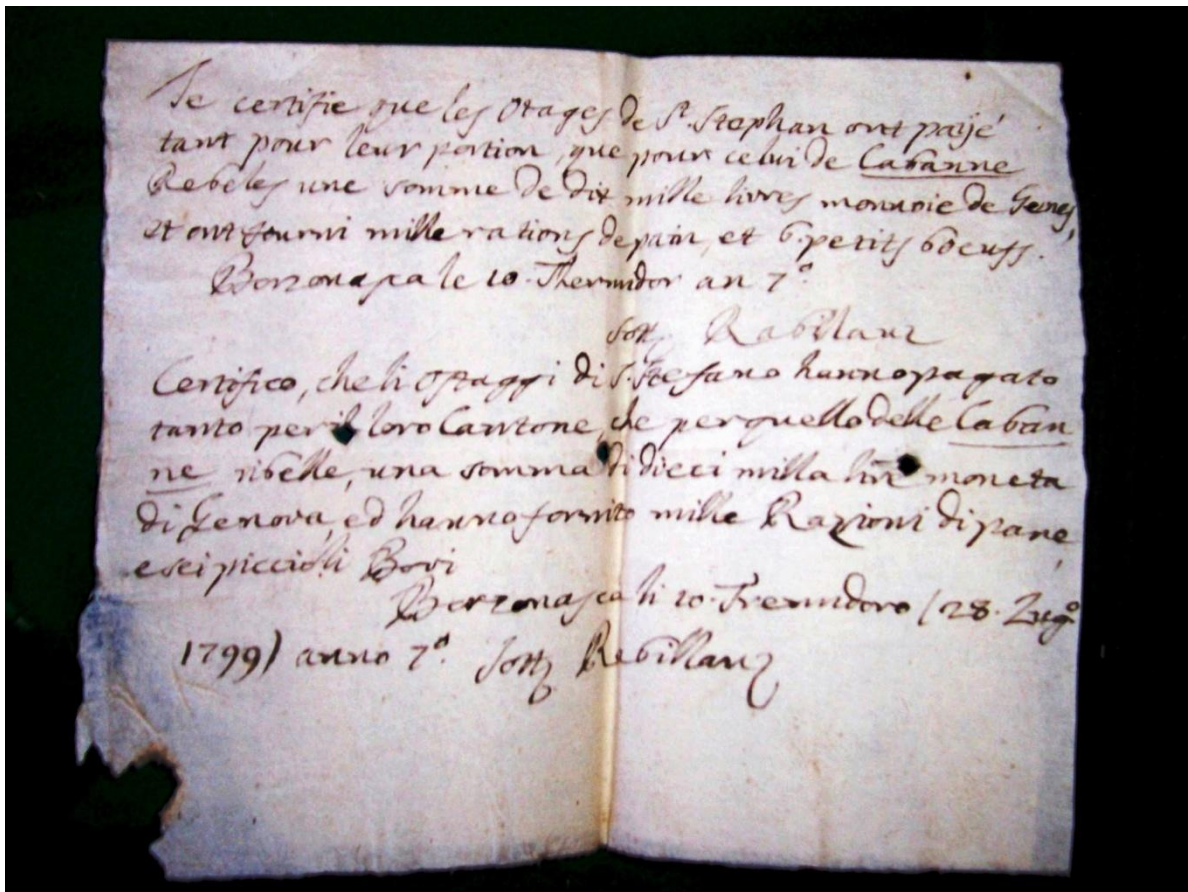 Je certifie que les Otages de S.t Stephan ont payé
tant pour leur portion, que pour celui de Cabanne
Rebeles une somme de dix mille livres monnoie de Genes,
et ont fourni mille rations de pain, et 6. petits boeufs.
Borzonasca le 10. Thermidor an 7.°
Sott. Rabillanz
Certifico, che li Ostaggi di S. Stefano hanno pagato
tanto per il loro Cantone, che per quello delle Caban
ne ribelle, una somma di dieci milla lire moneta
di Genova, ed hanno fornito mille Razioni di pane,
e sei piccioli Bovi
Borzonasca li 10. Tremidoro (28. Lug.°
1799) anno 7.° Sott. Rebillanz